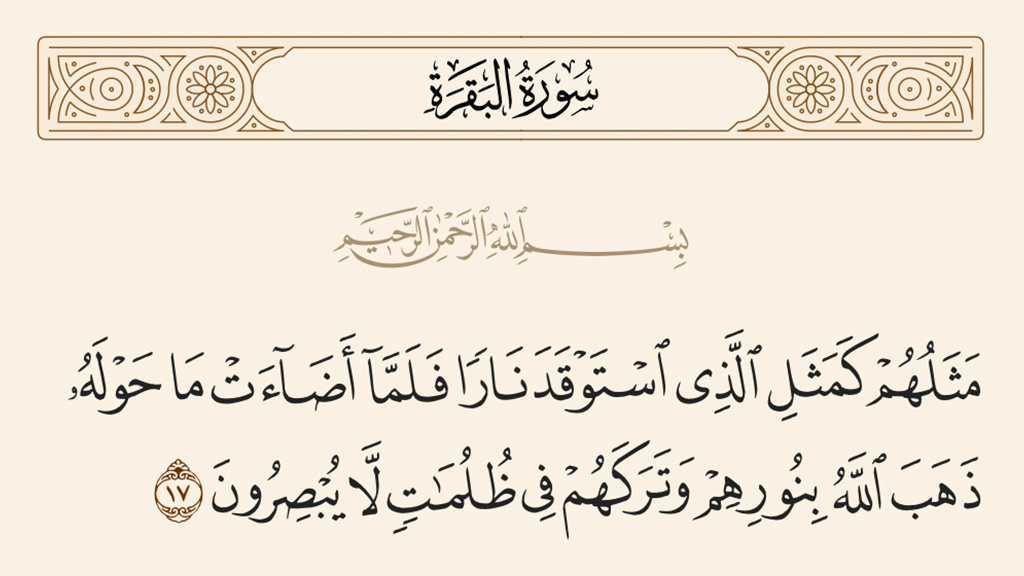 سُورَةُ البَقَرَةِ
بِسْمِ ٱللَّهِ ٱلرَّحْمَٰنِ ٱلرَّحِيمِ
مَثَلُهُمْ كَمَثَلِ ٱلَّذِى ٱسْتَوْقَدَ نَارًا فَلَمَّآ أَضَآءَتْ مَا حَوْلَهُۥ
ذَهَبَ ٱللَّهُ بِنُورِهِمْ وَتَرَكَهُمْ فِى ظُلُمَٰتٍ لَّا يُبْصِرُونَ ١٧